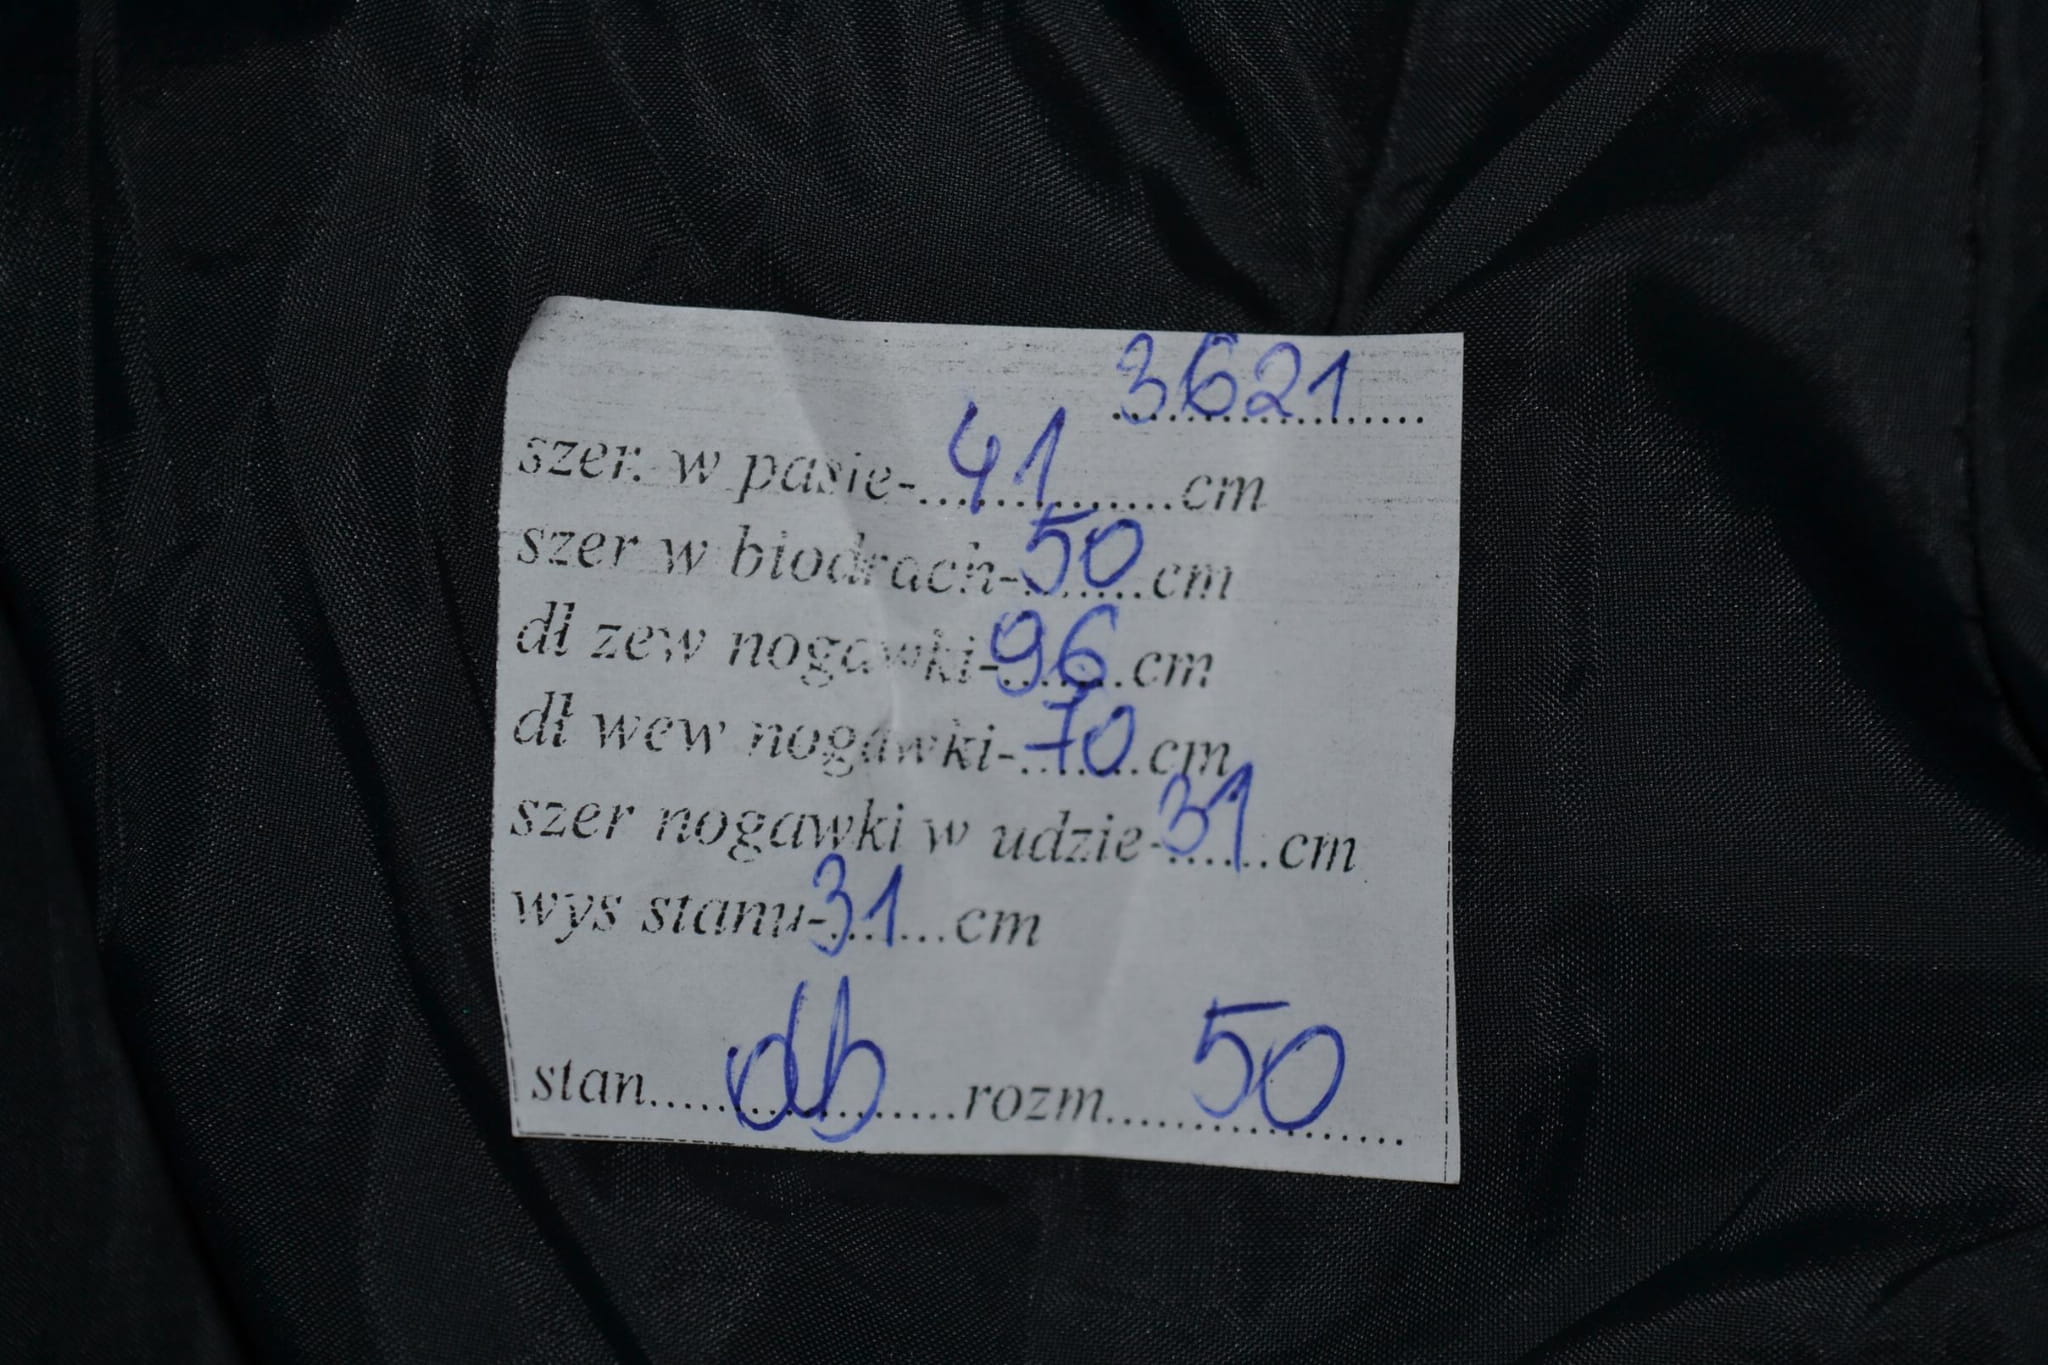 3621
szer. w pasie- 41 cm
szer w biodrach- 50 cm
dł zew nogawki- 96 cm
dł wew nogawki- 70 cm
szer nogawki w udzie- 31 cm
wys stanu- 31 cm
stan db rozm 50